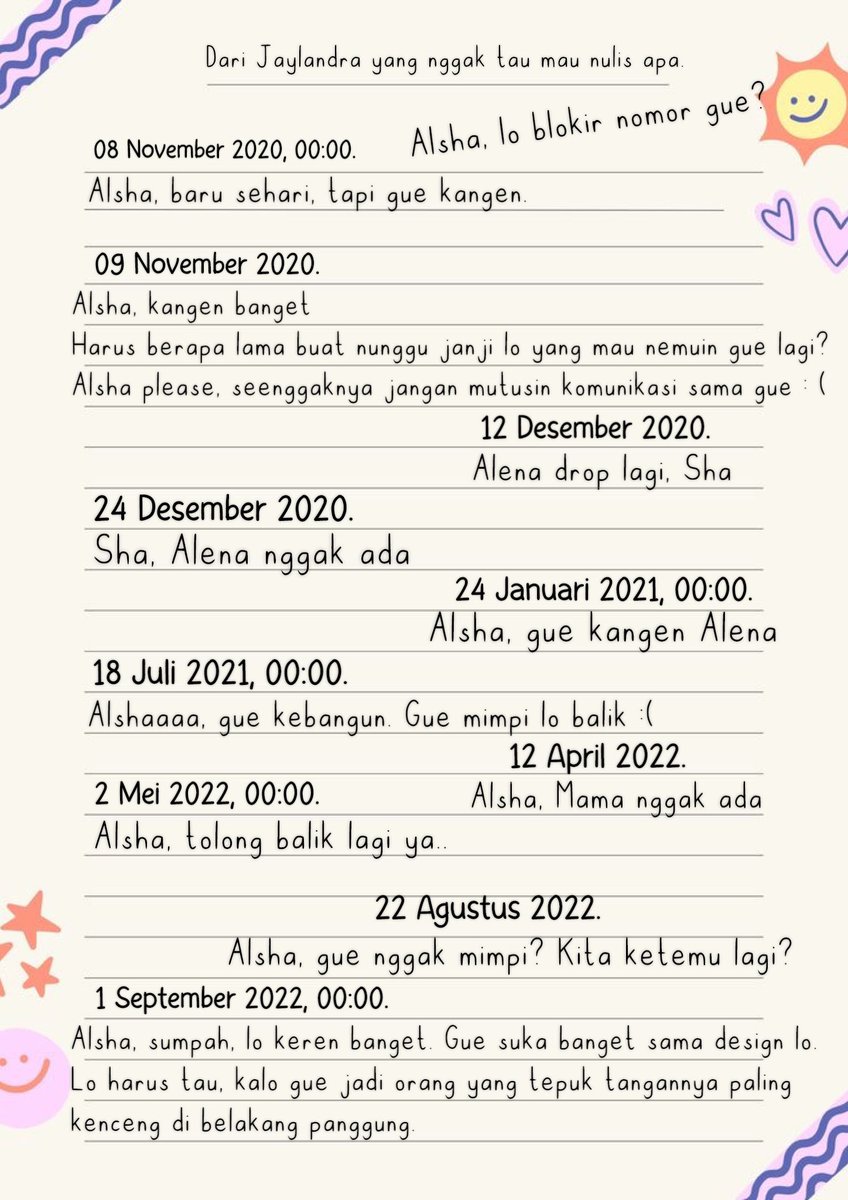 Dari Jaylandra yang nggak tau mau nulis apa.
08 November 2020, 00:00.
Alsha, lo blokir nomor gue?
Alsha, baru sehari, tapi gue kangen.
09 November 2020.
Alsha, kangen banget
Harus berapa lama buat nunggu janji lo yang mau nemuin gue lagi?
Alsha please, seenggaknya jangan mutusin komunikasi sama gue : (
12 Desember 2020.
Alena drop lagi, Sha
24 Desember 2020.
Sha, Alena nggak ada
24 Januari 2021, 00:00.
Alsha, gue kangen Alena
18 Juli 2021, 00:00.
Alshaaaa, gue kebangun. Gue mimpi lo balik :(
12 April 2022.
Alsha, Mama nggak ada
2 Mei 2022, 00:00.
Alsha, tolong balik lagi ya..
22 Agustus 2022.
Alsha, gue nggak mimpi? Kita ketemu lagi?
1 September 2022, 00:00.
Alsha, sumpah, lo keren banget. Gue suka banget sama design lo.
Lo harus tau, kalo gue jadi orang yang tepuk tangannya paling
kenceng di belakang panggung.